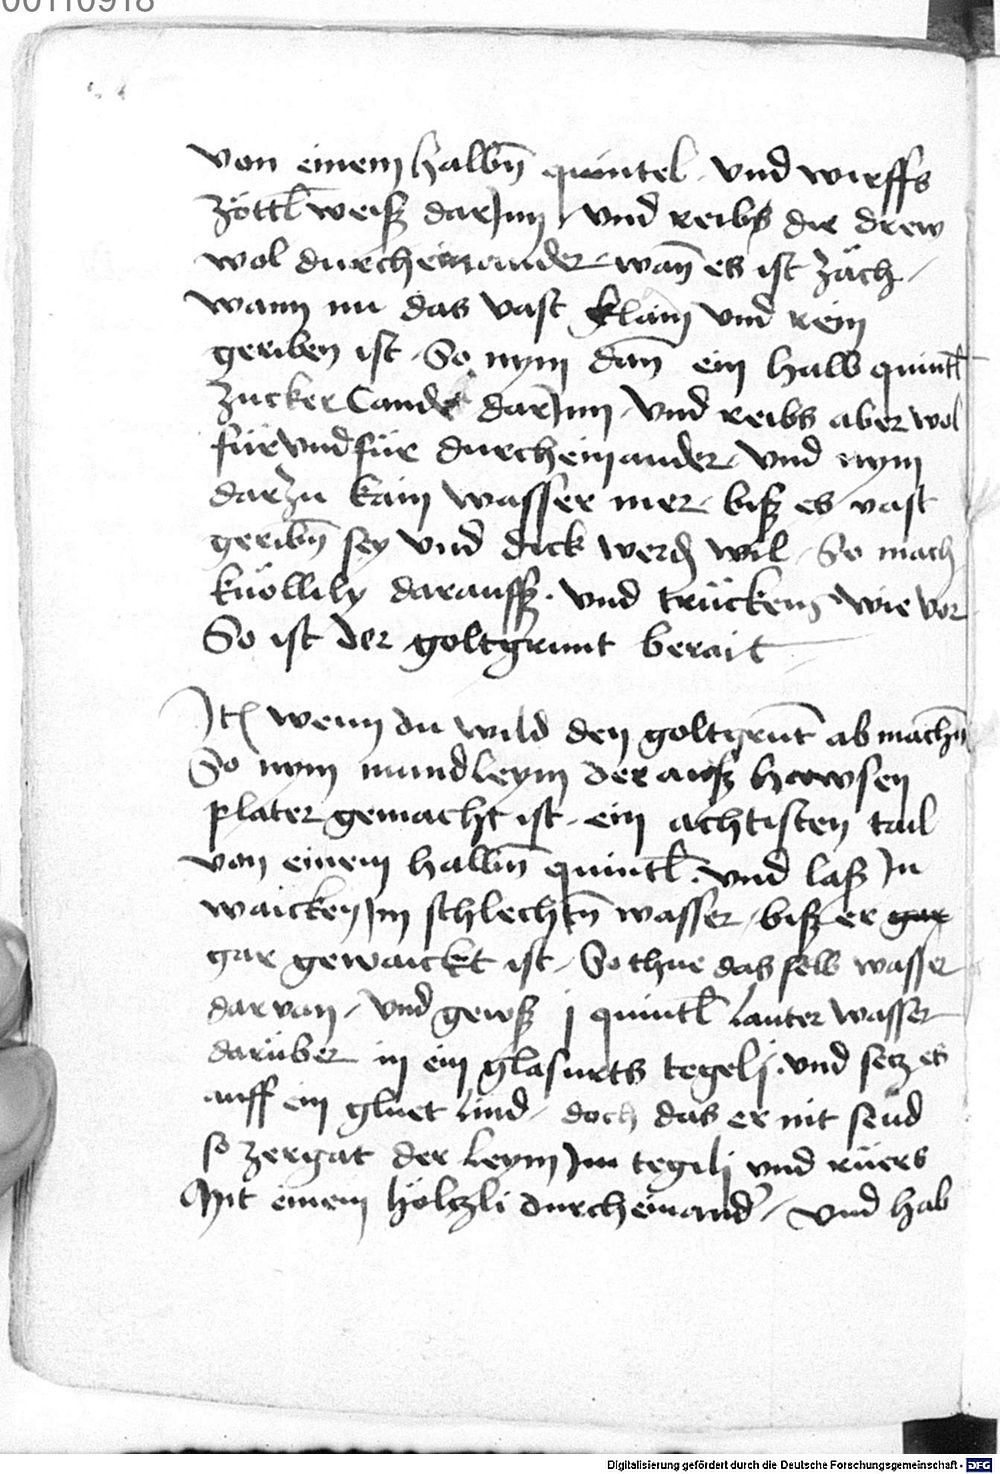 00110918
von einem halbn̄ quintel · vnd wirffs
zöttl̄ weiß darJnn / vnd reibs die drew
wol durcheinander · wan̄ es ist zäch /
wann nu das vast klain vnd rein
geriben ist · So nym dan̄ ein halb quintl̄
zucker Cande darJnn · vnd reibs aber wol
für vnd für durcheinander · vnd nym
darzu kain wasser mer · biß es vast
geribn̄ sey vnd dick werdn wil · So mach
küollily darauß · vnd trückens wie vor
So ist der goltgrunt berait
Jtem wenn du wild den goltgrūt ab machn̄
So nym mundleym der auß hawsen
plater gemacht ist · ein achtisten tail
von einem halbn̄ quintl̄ · vnd laß Jn
waicken Jn schlechtn̄ wasser · biß er gar
gar gewaickt ist · So thue das selb wasser
darvan / vnd gewß j quintl̄ lauter wasser
darüber in ein glasurts tegelj · vnd setz es
auff ein gluet lind · doch das er nit seüd
so zergat der leym Jm tegilj vnd rüers
Mit einem höltzli durcheinand' / vnd hab
Digitalisierung gefördert durch die Deutsche Forschungsgemeinschaft - DFG